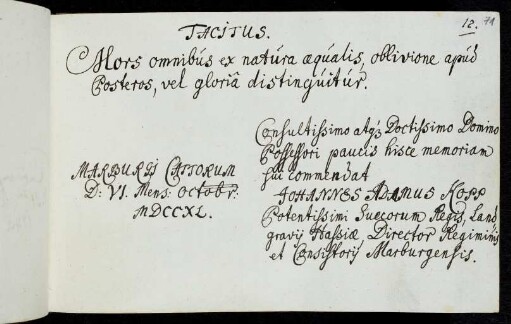 TACITUS.
12. 71
Mors omnibus ex natura æqualis, oblivione apud
Posteros, vel gloriâ distinguitur.
Consultissimo atq; Doctissimo Domino
Possessori paucis hisce memoriam
sui commendat
MARBURGI CATTORUM
D: VI. Mens: Octobr:
MDCCXL.
JOHANNES ADAMUS KOPP
Potentissimi Suecorum Regis, Land
gravij Hassiæ Director Regiminis
et Consistorij Marburgensis.